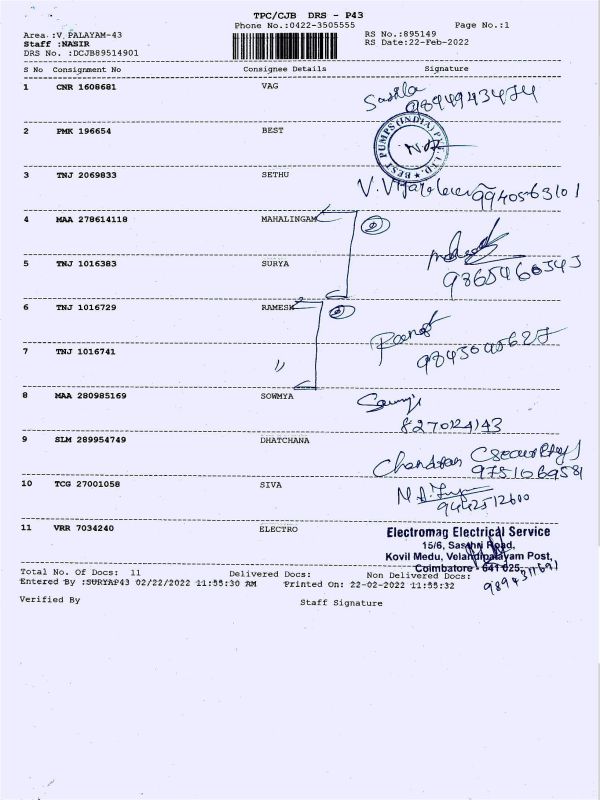 TPC/CJB DRS - P43
Phone No.:0422-3505555 Page No.:1
Area :V PALAYAM-43 RS No.:895149
Staff :NASIR RS Date:22-Feb-2022
DRS No. :DCJB89514901
S No Consignment No Consignee Details Signature
1 CNR 1608681 VAG
2 PMK 196654 BEST
BEST PUMPS (INDIA) PVT. LTD.
3 TNJ 2069833 SETHU
9940563101
4 MAA 278614118 MAHALINGAM 2
5 TNJ 1016383 SURYA
6 TNJ 1016729 RAMESH 2
7 TNJ 1016741 "
8 MAA 280985169 SOWMYA
8270124143
9 SLM 289954749 DHATCHANA
Chandran (Security)
9751069581
10 TCG 27001058 SIVA
9442512600
11 VRR 7034240 ELECTRO
Electromag Electrical Service
15/6, Sasthri Road,
Kovil Medu, Velandipalayam Post,
Coimbatore - 641 025.
9894311691
Total No. Of Docs: 11 Delivered Docs: Non Delivered Docs:
Entered By :SURYAP43 02/22/2022 11:55:30 AM Printed On: 22-02-2022 11:55:32
Verified By Staff Signature